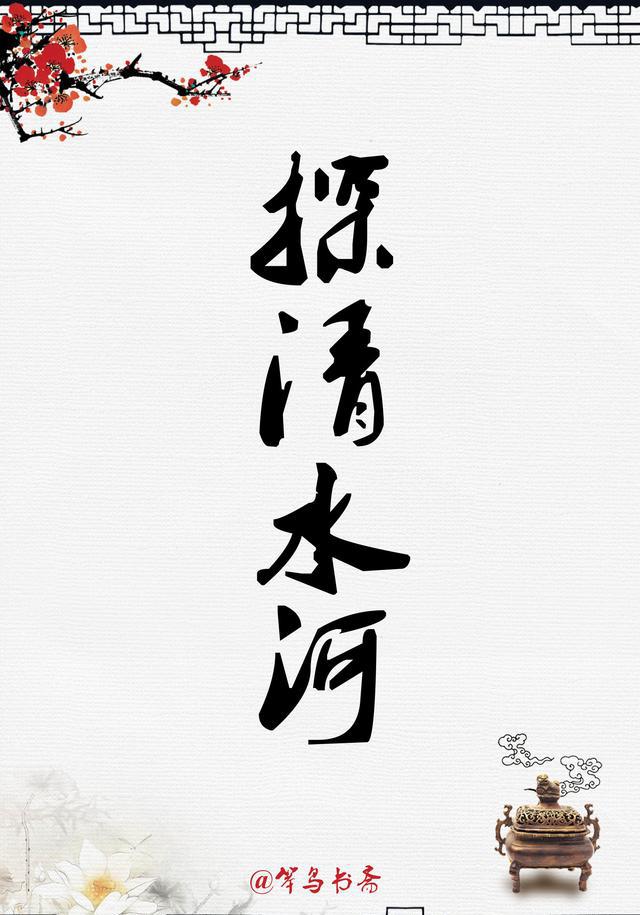 探清水河
@笨鸟书斋